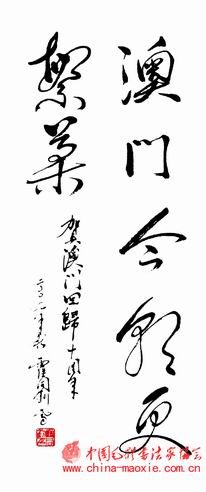 澳门今朝更
繁荣
贺澳门回歸十周年
中国毛体书法家协会
www.china-maoxie.com.cn